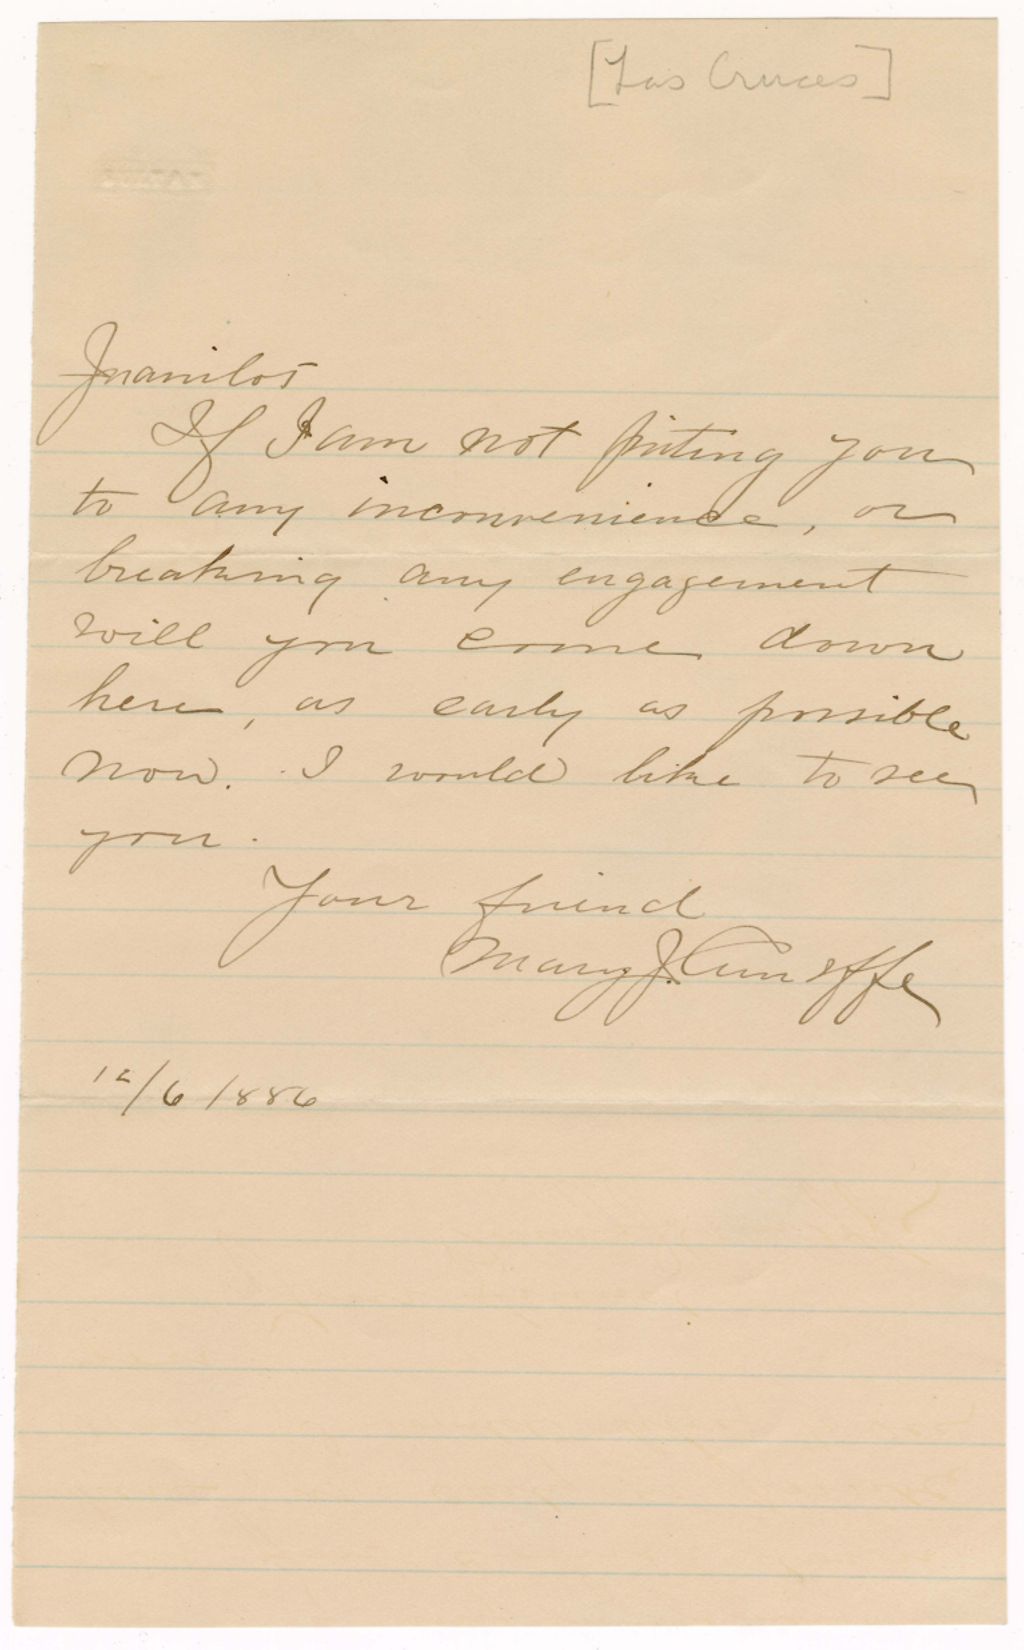 [Las Cruces]
Juanitos
If I am not putting you
to any inconvenience, or
breaking any engagement
will you come down
here, as early as possible
now. I would like to see
you.
Your friend
Mary J.
12/6 1886